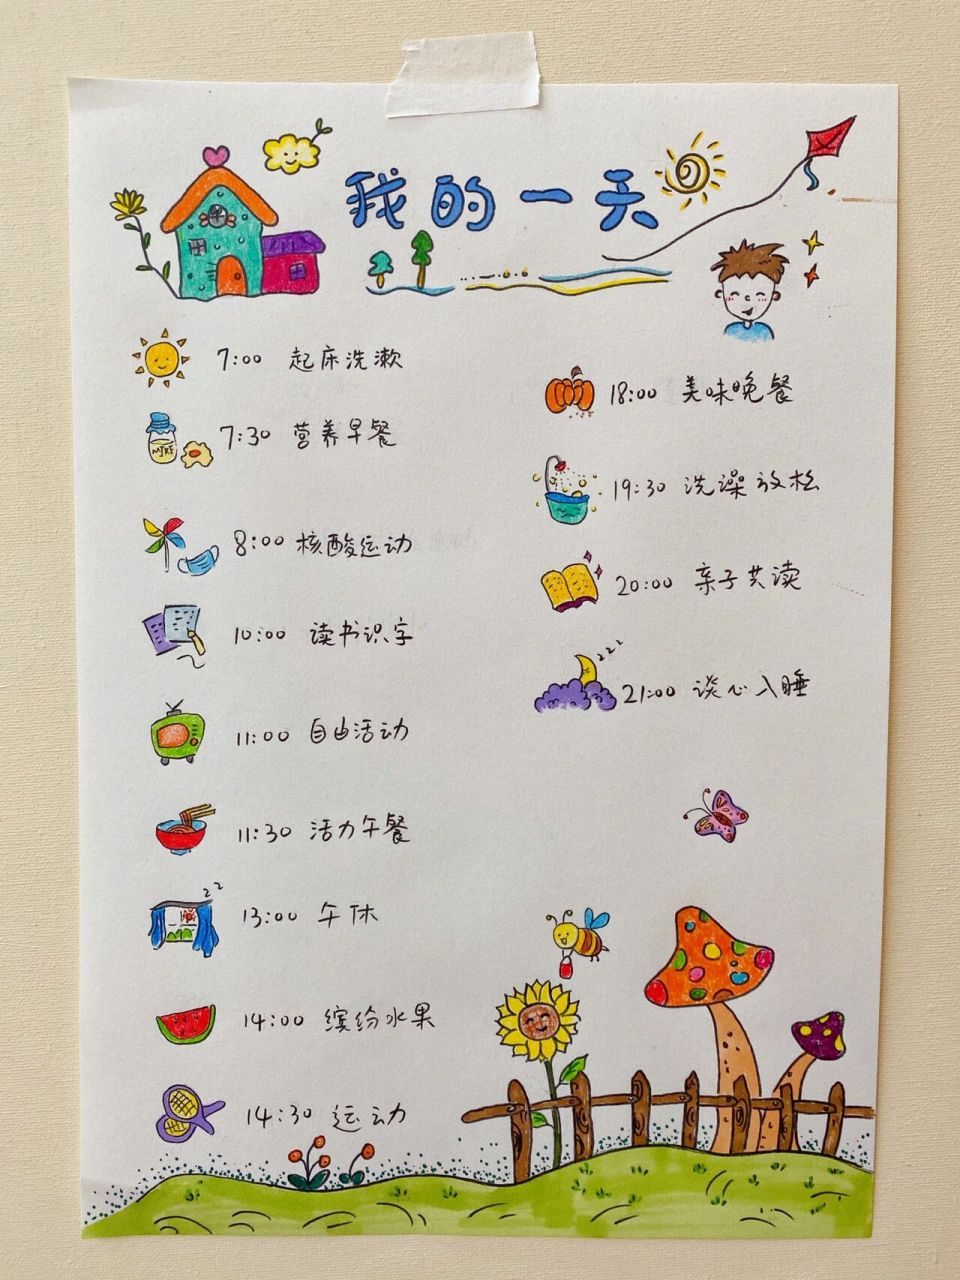 我的一天
7:00 起床洗漱
7:30 营养早餐
MILK
8:00 核酸运动
10:00 读书识字
11:00 自由活动
11:30 活力午餐
zz
13:00 午休
14:00 缤纷水果
14:30 运动
18:00 美味晚餐
19:30 洗澡放松
20:00 亲子共读
zzz
21:00 谈心入睡